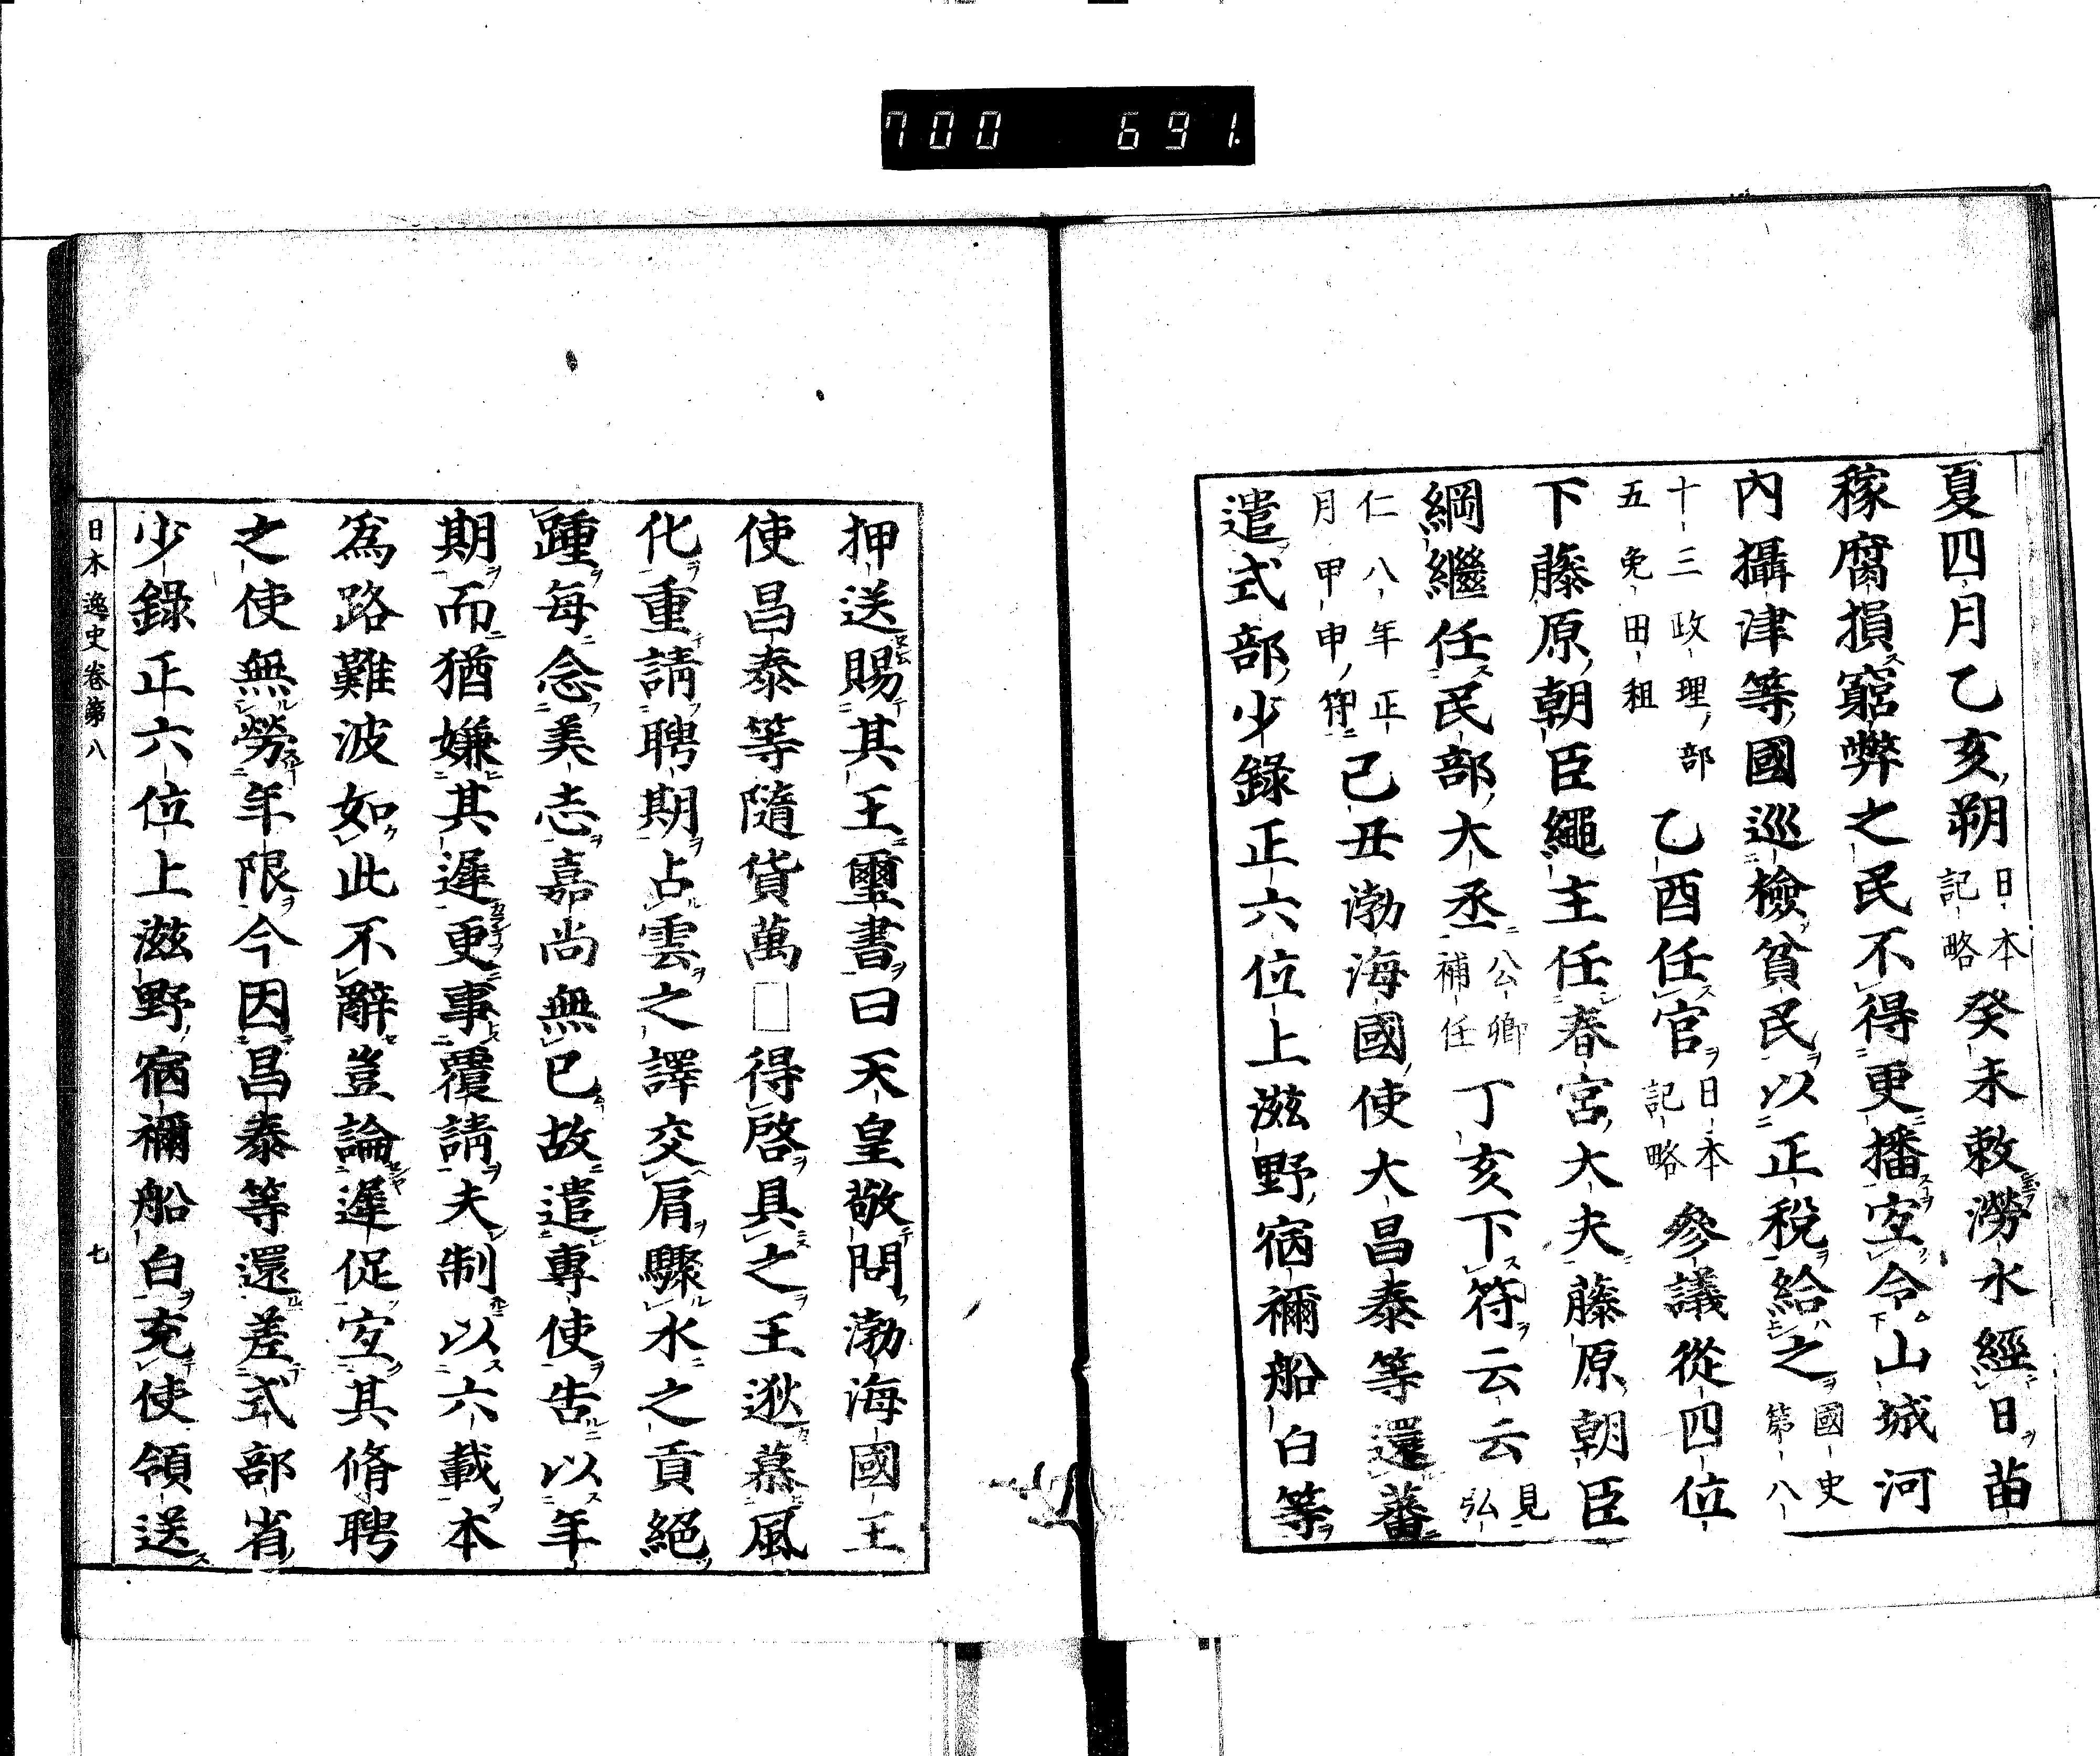 700 691
夏四月乙亥朔日本記略癸未敕澇水經日苗
稼腐損窮弊之民不得更播宜令山城河
內攝津等國巡檢貧民以正稅給之國史第八
十三政理部五免田租乙酉任官日本記略參議從四位
下藤原朝臣繩主任春宮大夫藤原朝臣
綱繼任民部大丞公卿補任丁亥下符云云見弘
仁八年正月甲申符己丑渤海國使大昌泰等還蕃
遣式部少錄正六位上滋野宿禰船白等
押送賜其王璽書曰天皇敬問渤海國王
使昌泰等隨貸萬□得啓具之王逖慕風
化重請聘期占雲之譯交肩驟水之貢絕
踵每念美志嘉尚無已故遣專使告以年
期而猶嫌其遲更事覆請夫制以六載本
為路難波如此不辭豈論遲促宜其脩聘
之使無勞年限今因昌泰等還差式部省
少錄正六位上滋野宿禰船白充使領送
日本逸史卷第八 七